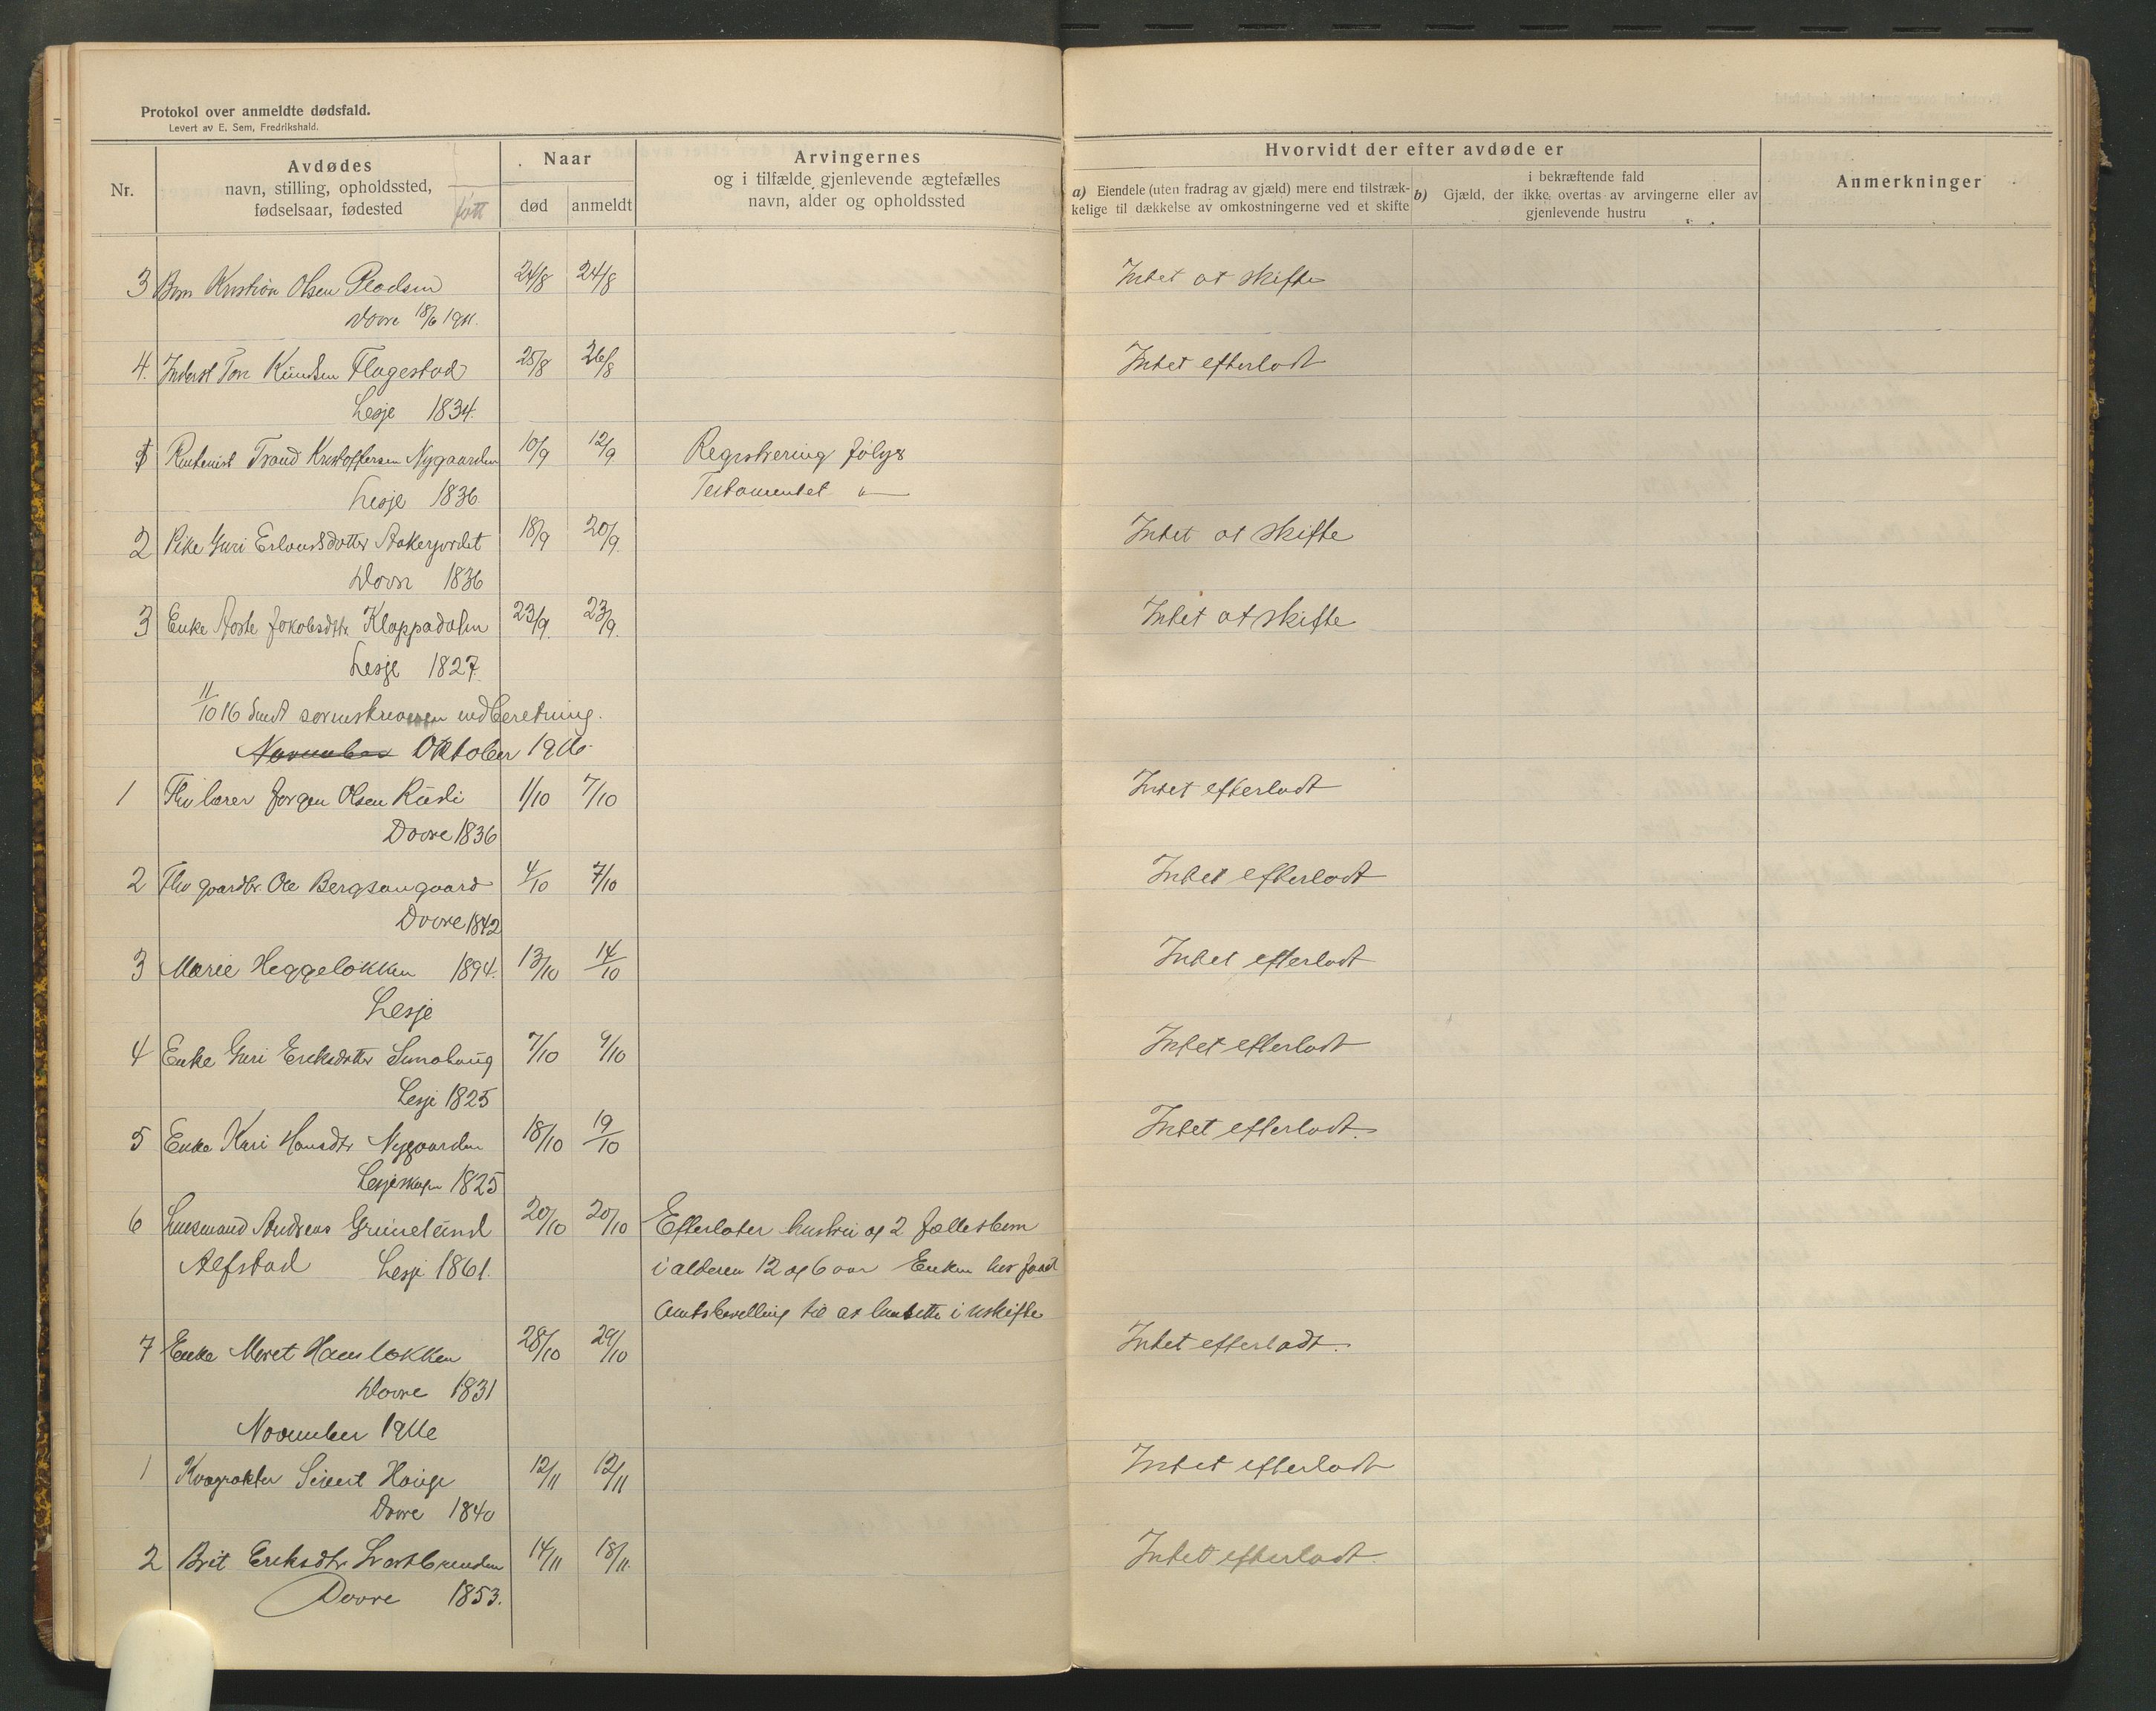 Protokol over anmeldte dødsfald.
Levert av E. Sem, Fredrikshald.
Nr.
Avdødes
navn, stilling, opholdssted,
fødselsaar, fødested
født
Naar
død
anmeldt
Arvingernes
og i tilfælde gjenlevende ægtefælles
navn, alder og opholdssted
Hvorvidt der efter avdøde er
a) Eiendele (uten fradrag av gjæld) mere end tilstræk-
kelige til dækkelse av omkostningerne ved et skifte
i bekræftende fald
b) Gjæld, der ikke overtas av arvingerne eller av
gjenlevende hustru
Anmerkninger
3 Barn Kristian Olsen 24/8 24/8 Intet at skifte
Dovre 18/6 1911.
4. Inderst Tore Knudsen Flagestad 25/8 26/8 Intet efterladt
Lesje 1834.
1 Rentenist Trond Kristoffersen Nygaarden 10/9 12/9 Registrering følger
Lesje 1836. Testamentet
2 Pike Guri Erlandsdotter 18/9 20/9. Intet at skifte
Dovre 1836
3 Enke Aaste Jakobsdtr. Klappadalen 23/9. 23/9. Intet at skifte
Lesje 1827.
11/10 16 Sendt sorenskriveren indberetning.
November Oktober 1916.
1 Fhv lærer Jørgen Olsen Rudi 1/10 7/10 Intet efterladt
Dovre 1836
2 Fhv gaardbr. Ole Bergsangaard 4/10 7/10 Intet efterladt
Dovre 1842
3 Marie Heggeløkken 1894. 13/10 14/10 Intet efterladt
Lesje
4 Enke Guri Eriksdotter 7/10 9/10 Intet efterladt
Lesje 1825
5 Enke Kari Hansdtr Nygaarden 18/10 19/10 Intet efterladt.
Lesjeskogen 1825
6 Lensmand Andreas Gruneland 20/10 20/10 Efterlater hustru og 2 fællesbarn
Alfstad Lesje 1861. i alderen 12 og 6 aar Enken har faat
Amtsbevilling til at hensitte i uskifte
7 Enke Meret Hamløkken 28/10 29/10 Intet efterladt.
Dovre 1831
November 1916
1 Kvægrøkter Sivert Hauge 12/11 12/11 Intet efterladt
Dovre 1840
2 Brit Eriksdtr 14/11 18/11. Intet efterladt.
Dovre 1853.